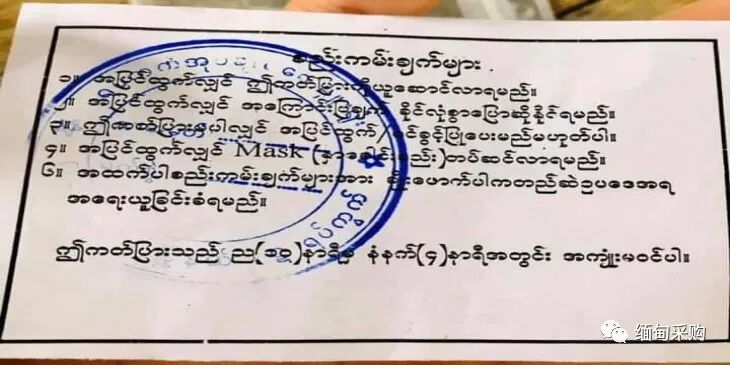 စည်းကမ်းချက်များ
၁။ အပြင်ထွက်လျှင် ဤကတ်ပြားကိုယူဆောင်လာရမည်။
၂။ အပြင်ထွက်လျှင် အကြောင်းပြချက် ခိုင်လုံစွာပြောဆိုနိုင်ရမည်။
၃။ ဤကတ်ပြားမပါလျှင် အပြင်ထွက်/ဝင်ခွင့်ပြုပေးမည်မဟုတ်ပါ။
၄။ အပြင်ထွက်လျှင် Mask (နှာခေါင်းစည်း)တပ်ဆင်လာရမည်။
၆။ အထက်ပါစည်းကမ်းချက်များအား ဖောက်ပါကတည်ဆဲဥပဒေအရ
အရေးယူခြင်းခံရမည်။
ဤကတ်ပြားသည် ည နာရီမှ နံနက်(၄)နာရီအတွင်း အကျုံးမဝင်ပါ။
缅甸采购